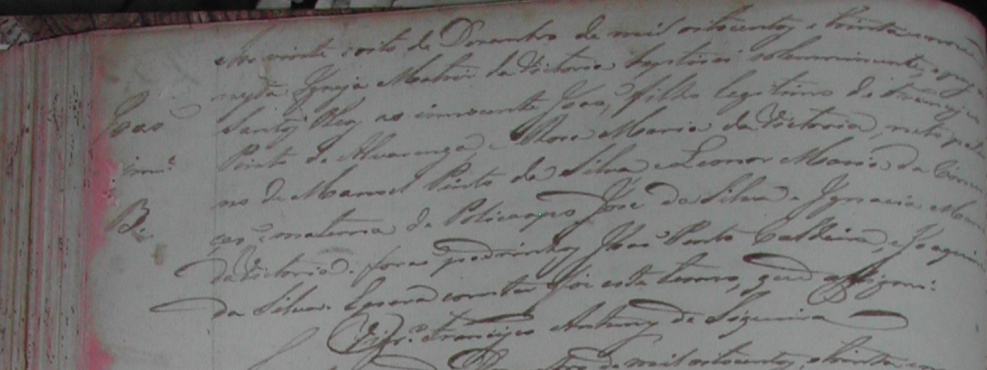 Aos vinte e oito de Dezembro de mil oitocentos e trinta
nesta Igreja Matriz da Victoria baptizei solemnemente, e puz os
João
Santos Oleos ao innocente João, filho legitimo de Francisco
inn.e
Pinto de Alvarenga e Rosa Maria da Victoria, neto pater
no de Manoel Pinto da Silva e Leonor Maria da Concei
B.
ção, e materno de Policarpo José da Silva e Ignacia Maria
da Victoria. foraõ padrinhos Joaõ Pinto Caldeira, e Joaquina
da Silva. E para constar fiz este termo, que assignei.
O Vigr.o Francisco Antunes de Siqueira
de mil oitocentos, e trinta